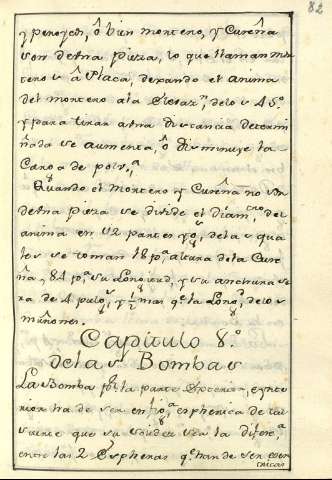 82
y penoyedn, ô bien mortero, y Cureña
son de una pieza, lo que llaman mor
tero s â Placa, dexando el anima
del mortero a la Elevaz.n de los 45.º
y para tirar a una distancia determi
nada se aumenta, ô disminuye la
Carga de polv.ª
Quando el mortero y Cureña no son
de una pieza se divide el diám.tro del
anima en 12 partes y.s de las qua
les se toman 18 p.ª altura de la Cure
ña, 84 p.ª su Longitud, y su anchura se
ra de 4 pulg.s y ½ mas q.e la Long.d de los
muñones.
Capitulo 8.º
de las Bombas
La Bomba p.r la parte Exterior, e ynte
rior ha de ser en fig.ª espherica de tal
suerte que su solidez sea la difer.ª
entre las 2 Espheras q.e han de ser excen
tricas